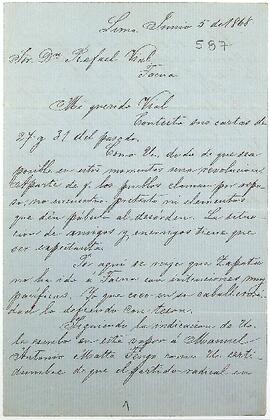 Lima, Junio 5 de 1868
587
Sor. Dn. Rafael Vial
Tacna
Mi querido Vial
Contesto sus cartas de
27 y 31 del pasado.
Como U., dudo de que sea
posible en estos momentos una revolucion
Aparte de q. los pueblos claman por repo-
so, no encuentro pretesto ni elementos
que den pábulo al desórden. La situa-
cion de amigos y enemigos tiene que
ser espectante.
Por aquí se ruge que Zapata
no ha ido á Tacna con intenciones muy
pacíficas. Yo que creo en su caballerosi-
dad lo defiendo con teson.
Siguiendo la indicacion de U.
le escribo en este vapor á Manuel
Antonio Matta. Tengo como U. certi-
dumbre de que el partido radical en
1